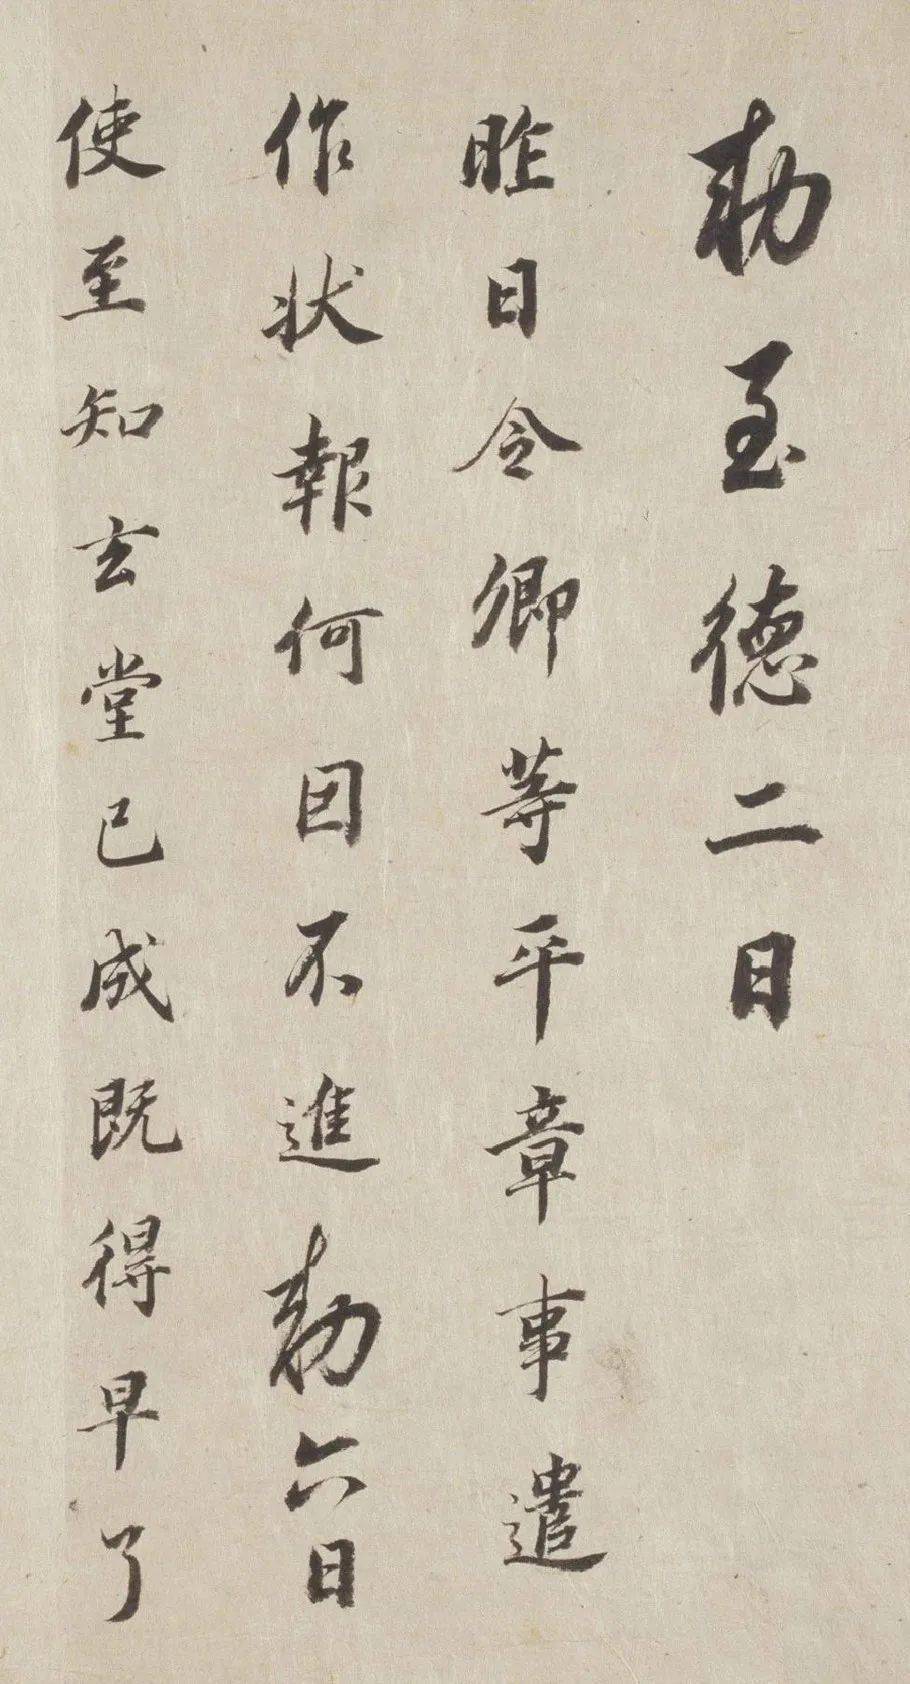 勅至德二日
昨日令卿等平章事遣
作状報何因不進勅六日
使至知玄堂已成既得早了